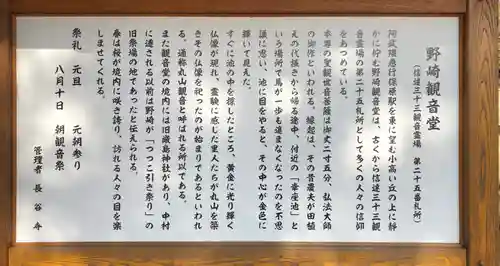 野崎観音堂
(信達三十三観音霊場 第二十五番札所)
阿武隈急行保原駅を東に望む小高い丘の上に静
かに佇む野崎観音堂は、古くから信達三十三観
音霊場の第二十五札所として多くの人々の信仰
をあつめている。
本尊の聖観世音菩薩は御丈二寸五分、弘法大師
の御作といわれる。縁起は、その昔農夫が田植
えの代掻きから帰る途中、付近の「幸座池」と
いう場所で馬が一歩も進まなくなったのを不思
議に思い、池に目をやると、その中心が金色に
輝いて見えた。
すぐに池の中を探したところ、黄金に光り輝く
仏像が現れ、霊験に感じた里人たちが丸山を築
きその仏像を祀ったのが始まりであるといわれ
る。通称丸山観音と呼ばれる所以である。
また観音堂の境内には旧厳島神社があり、中村
に遷される以前は野崎が「つつこ引き祭り」の
旧祭場の地であったと伝えられる。
春は桜が境内に咲き誇り、訪れる人々の目を楽
しませてくれる。
祭礼 元旦 元朝参り
八月十日 朝観音祭
管理者 長谷寺